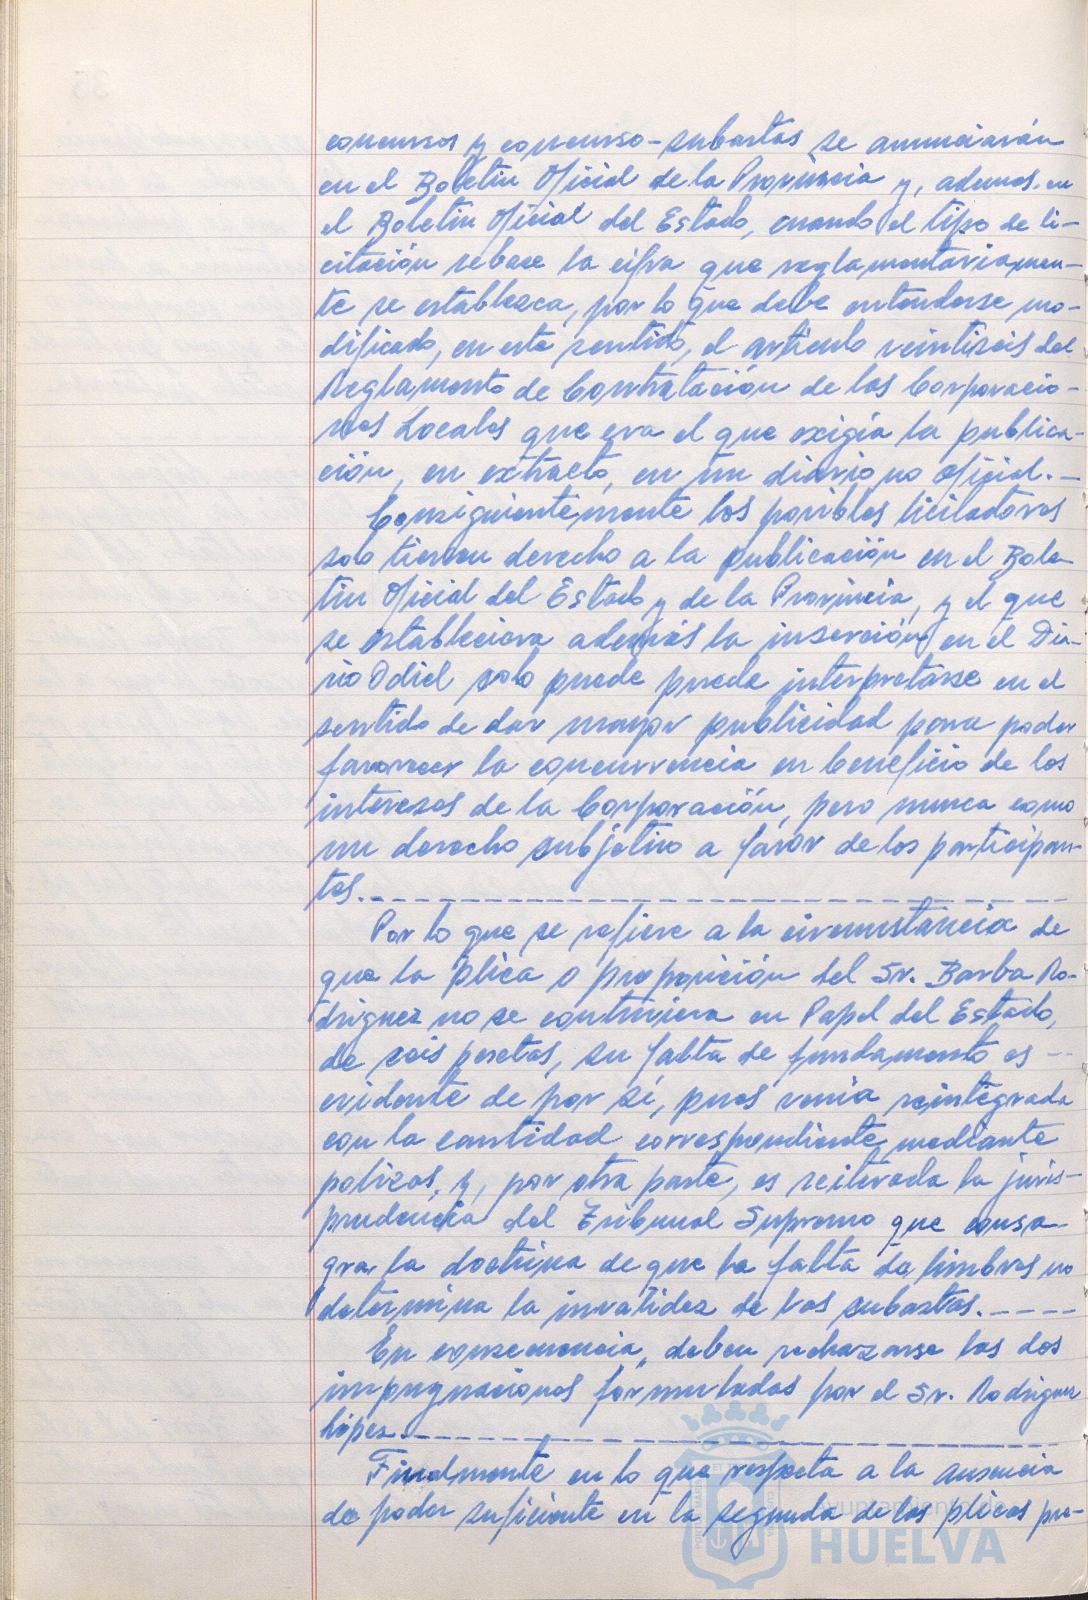 concursos y concurso-subastas se anunciarán
en el Boletin Oficial de la Provincia y, ademas en
el Boletin Oficial del Estado, cuando el tipo de li-
citación rebase la cifra que reglamentariamen-
te se establezca, por lo que debe entenderse mo-
dificado, en este sentido, el articulo veintiseis del
Reglamento de Contratación de las Corporacio-
nes Locales que era el que exigía la publica-
ción, en extracto, en un diario no oficial.-
Consiguientemente los posibles licitadores
solo tienen derecho a la publicación en el Bole-
tin Oficial del Estado y de la Provincia, y el que
se estableciera además la inserción en el Dia-
rio Odiel solo puede puede interpretarse en el
sentido de dar mayor publicidad para poder
favorecer la concurrencia en beneficio de los
intereses de la Corporación, pero nunca como
un derecho subjetivo a favor de los participan-
tes.
Por lo que se refiere a la circunstancia de
que la plica o proposición del Sr. Barba Ro-
driguez no se contuviera en Papel del Estado,
de seis pesetas, su falta de fundamento es
evidente de por sí, pues venia reintegrada
con la cantidad correspondiente mediante
polizas, y, por otra parte, es reiterada la juris-
prudencia del Tribunal Supremo que consa-
gra la doctrina de que la falta de timbres no
determina la invalidez de las subastas.----
En consecuencia, deben rechazarse las dos
impugnaciones formuladas por el Sr. Rodriguez
López.
Finalmente en lo que respecta a la ausencia
de poder suficiente en la segunda de las plicas pre-
Ayuntamiento de
HUELVA